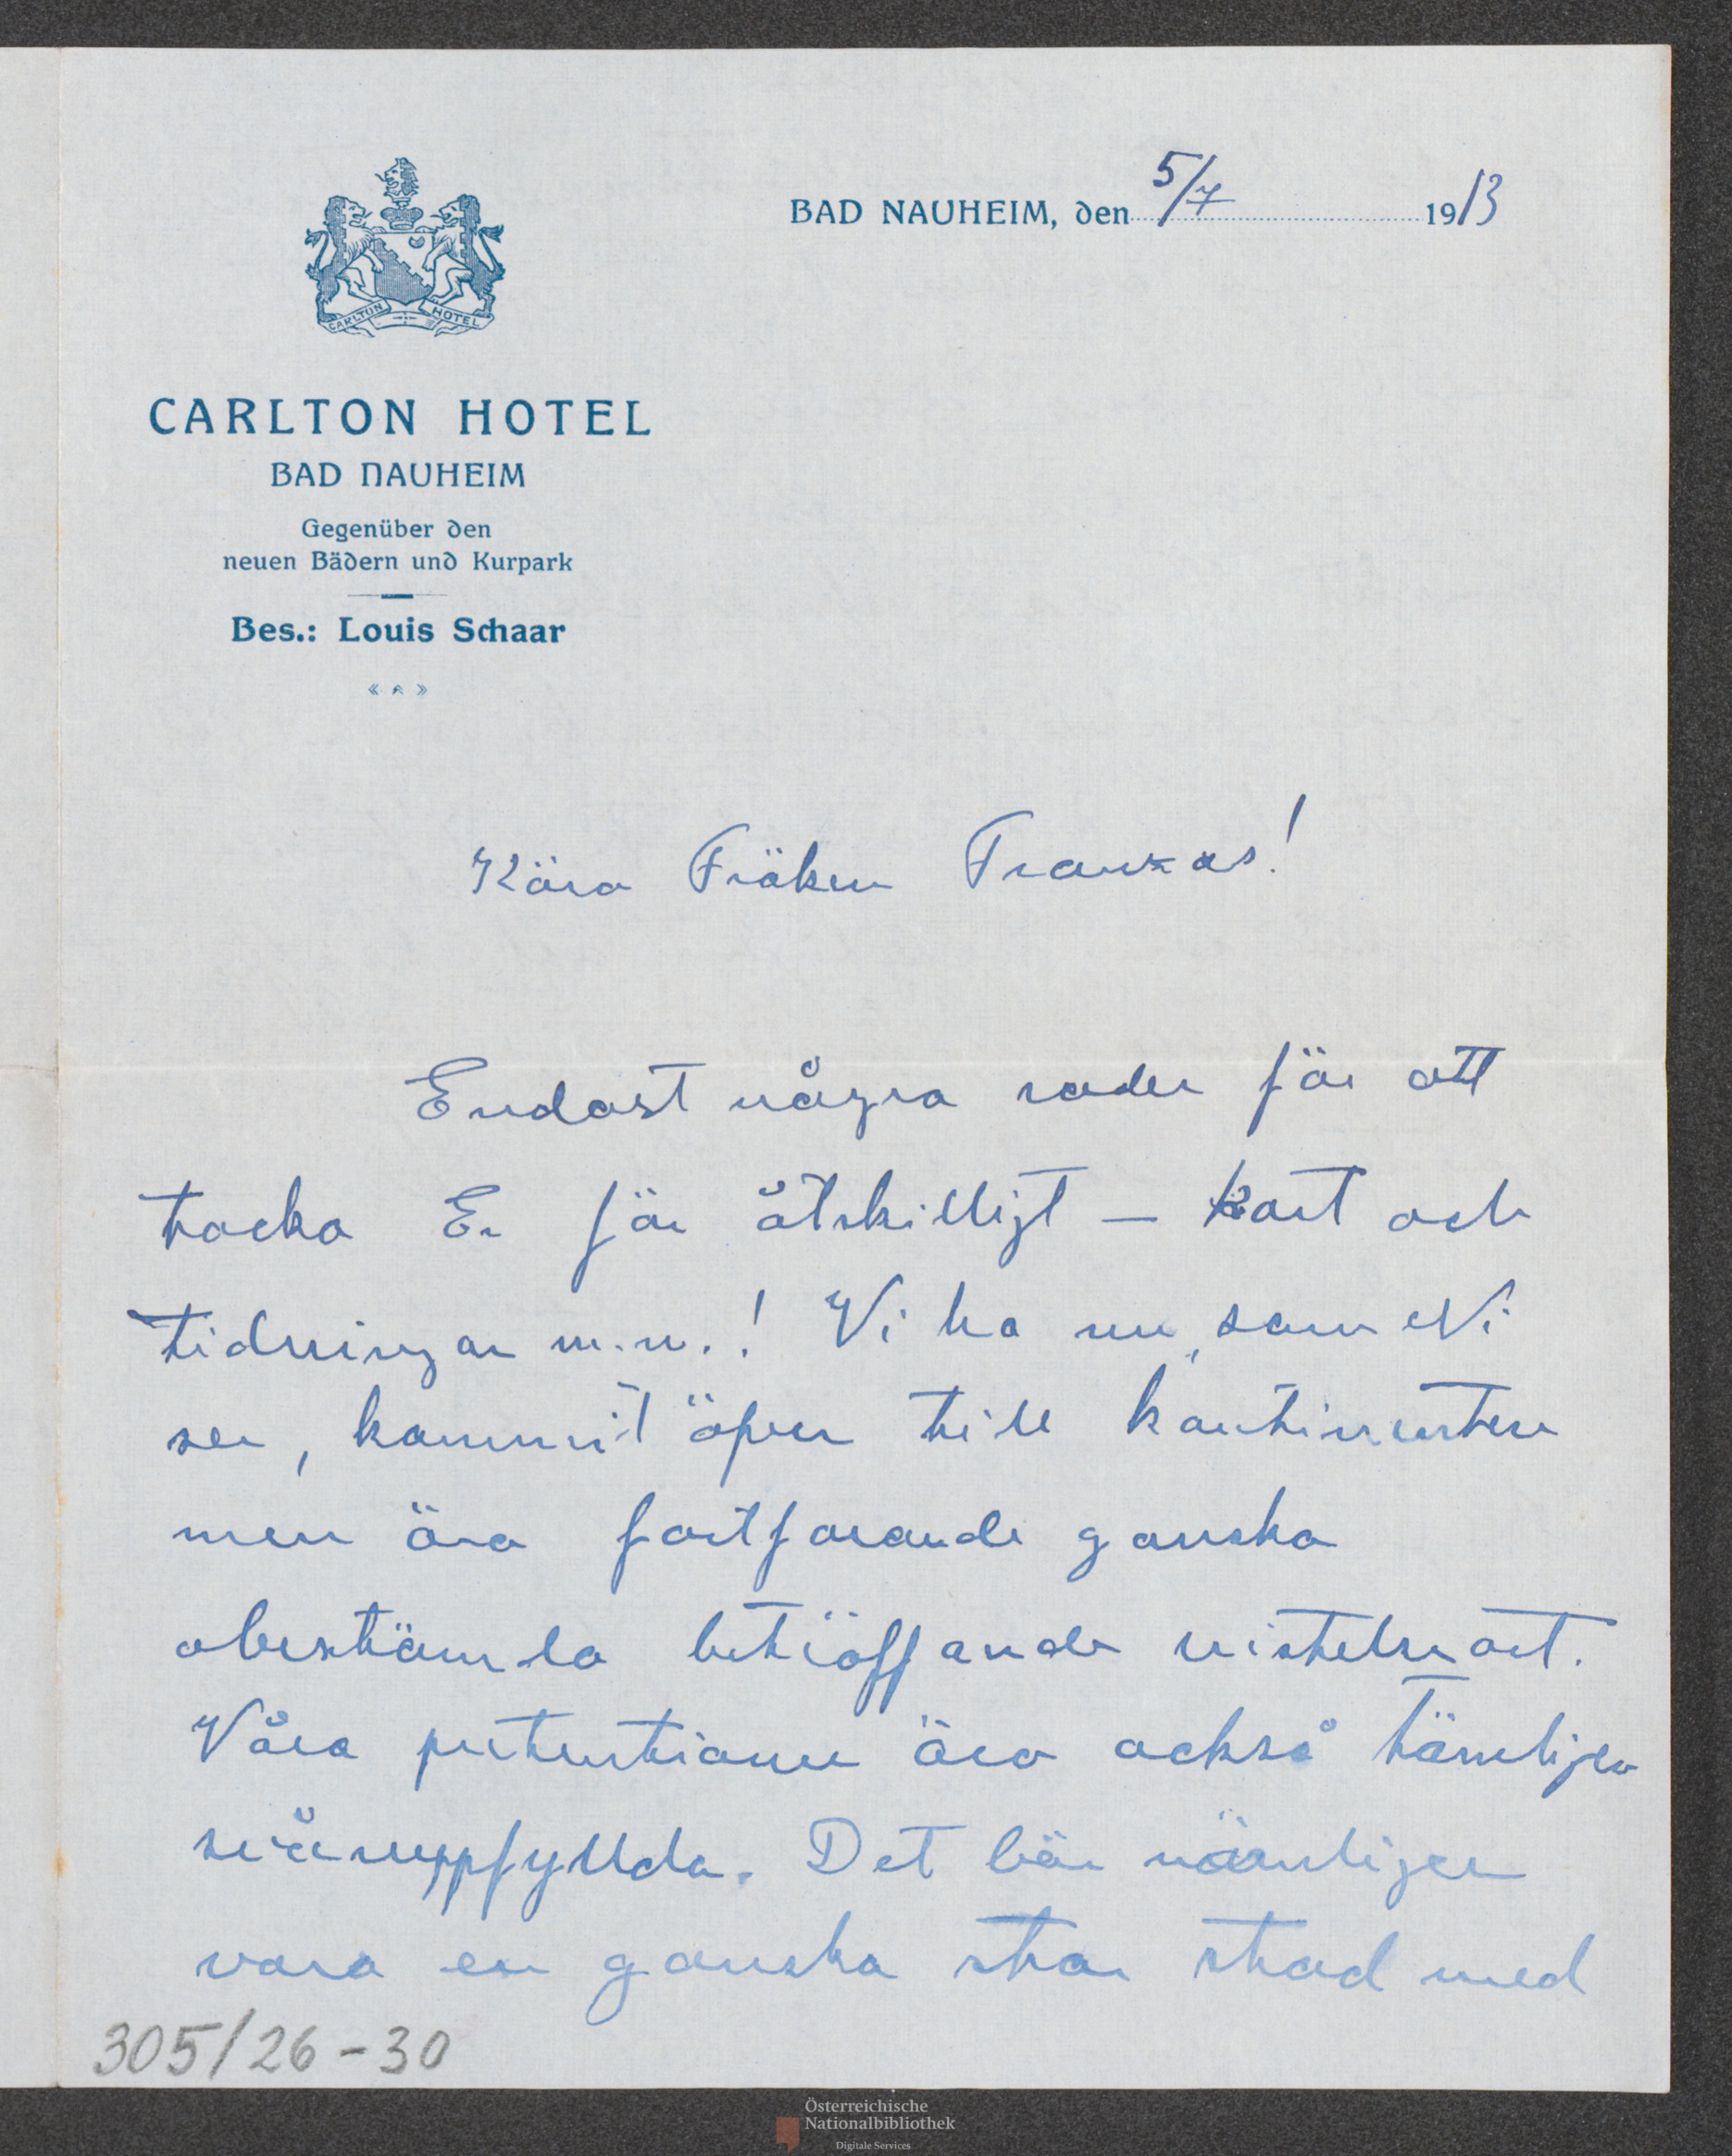 5/7
BAD NAUHEIM, den 1913
CARLTON HOTEL
CARLTON HOTEL
BAD NAUHEIM
Gegenüber den
neuen Bädern und Kurpark
Bes.: Louis Schaar
Kära Fröken Franzos!
Endast några rader för att
tacka Er för åtskilligt – kort och
tidningar m.m.! Vi ha nu, som Ni
ser, kommit öfver till kontinenten
men äro fortfarande ganska
obestämda beträffande vistelseort.
Våra pretentioner äro också tämligen
svåruppfyllda. Det bör nämligen
vara en ganska stor stad med
305/26-30
Österreichische
Nationalbibliothek
Digitale Services